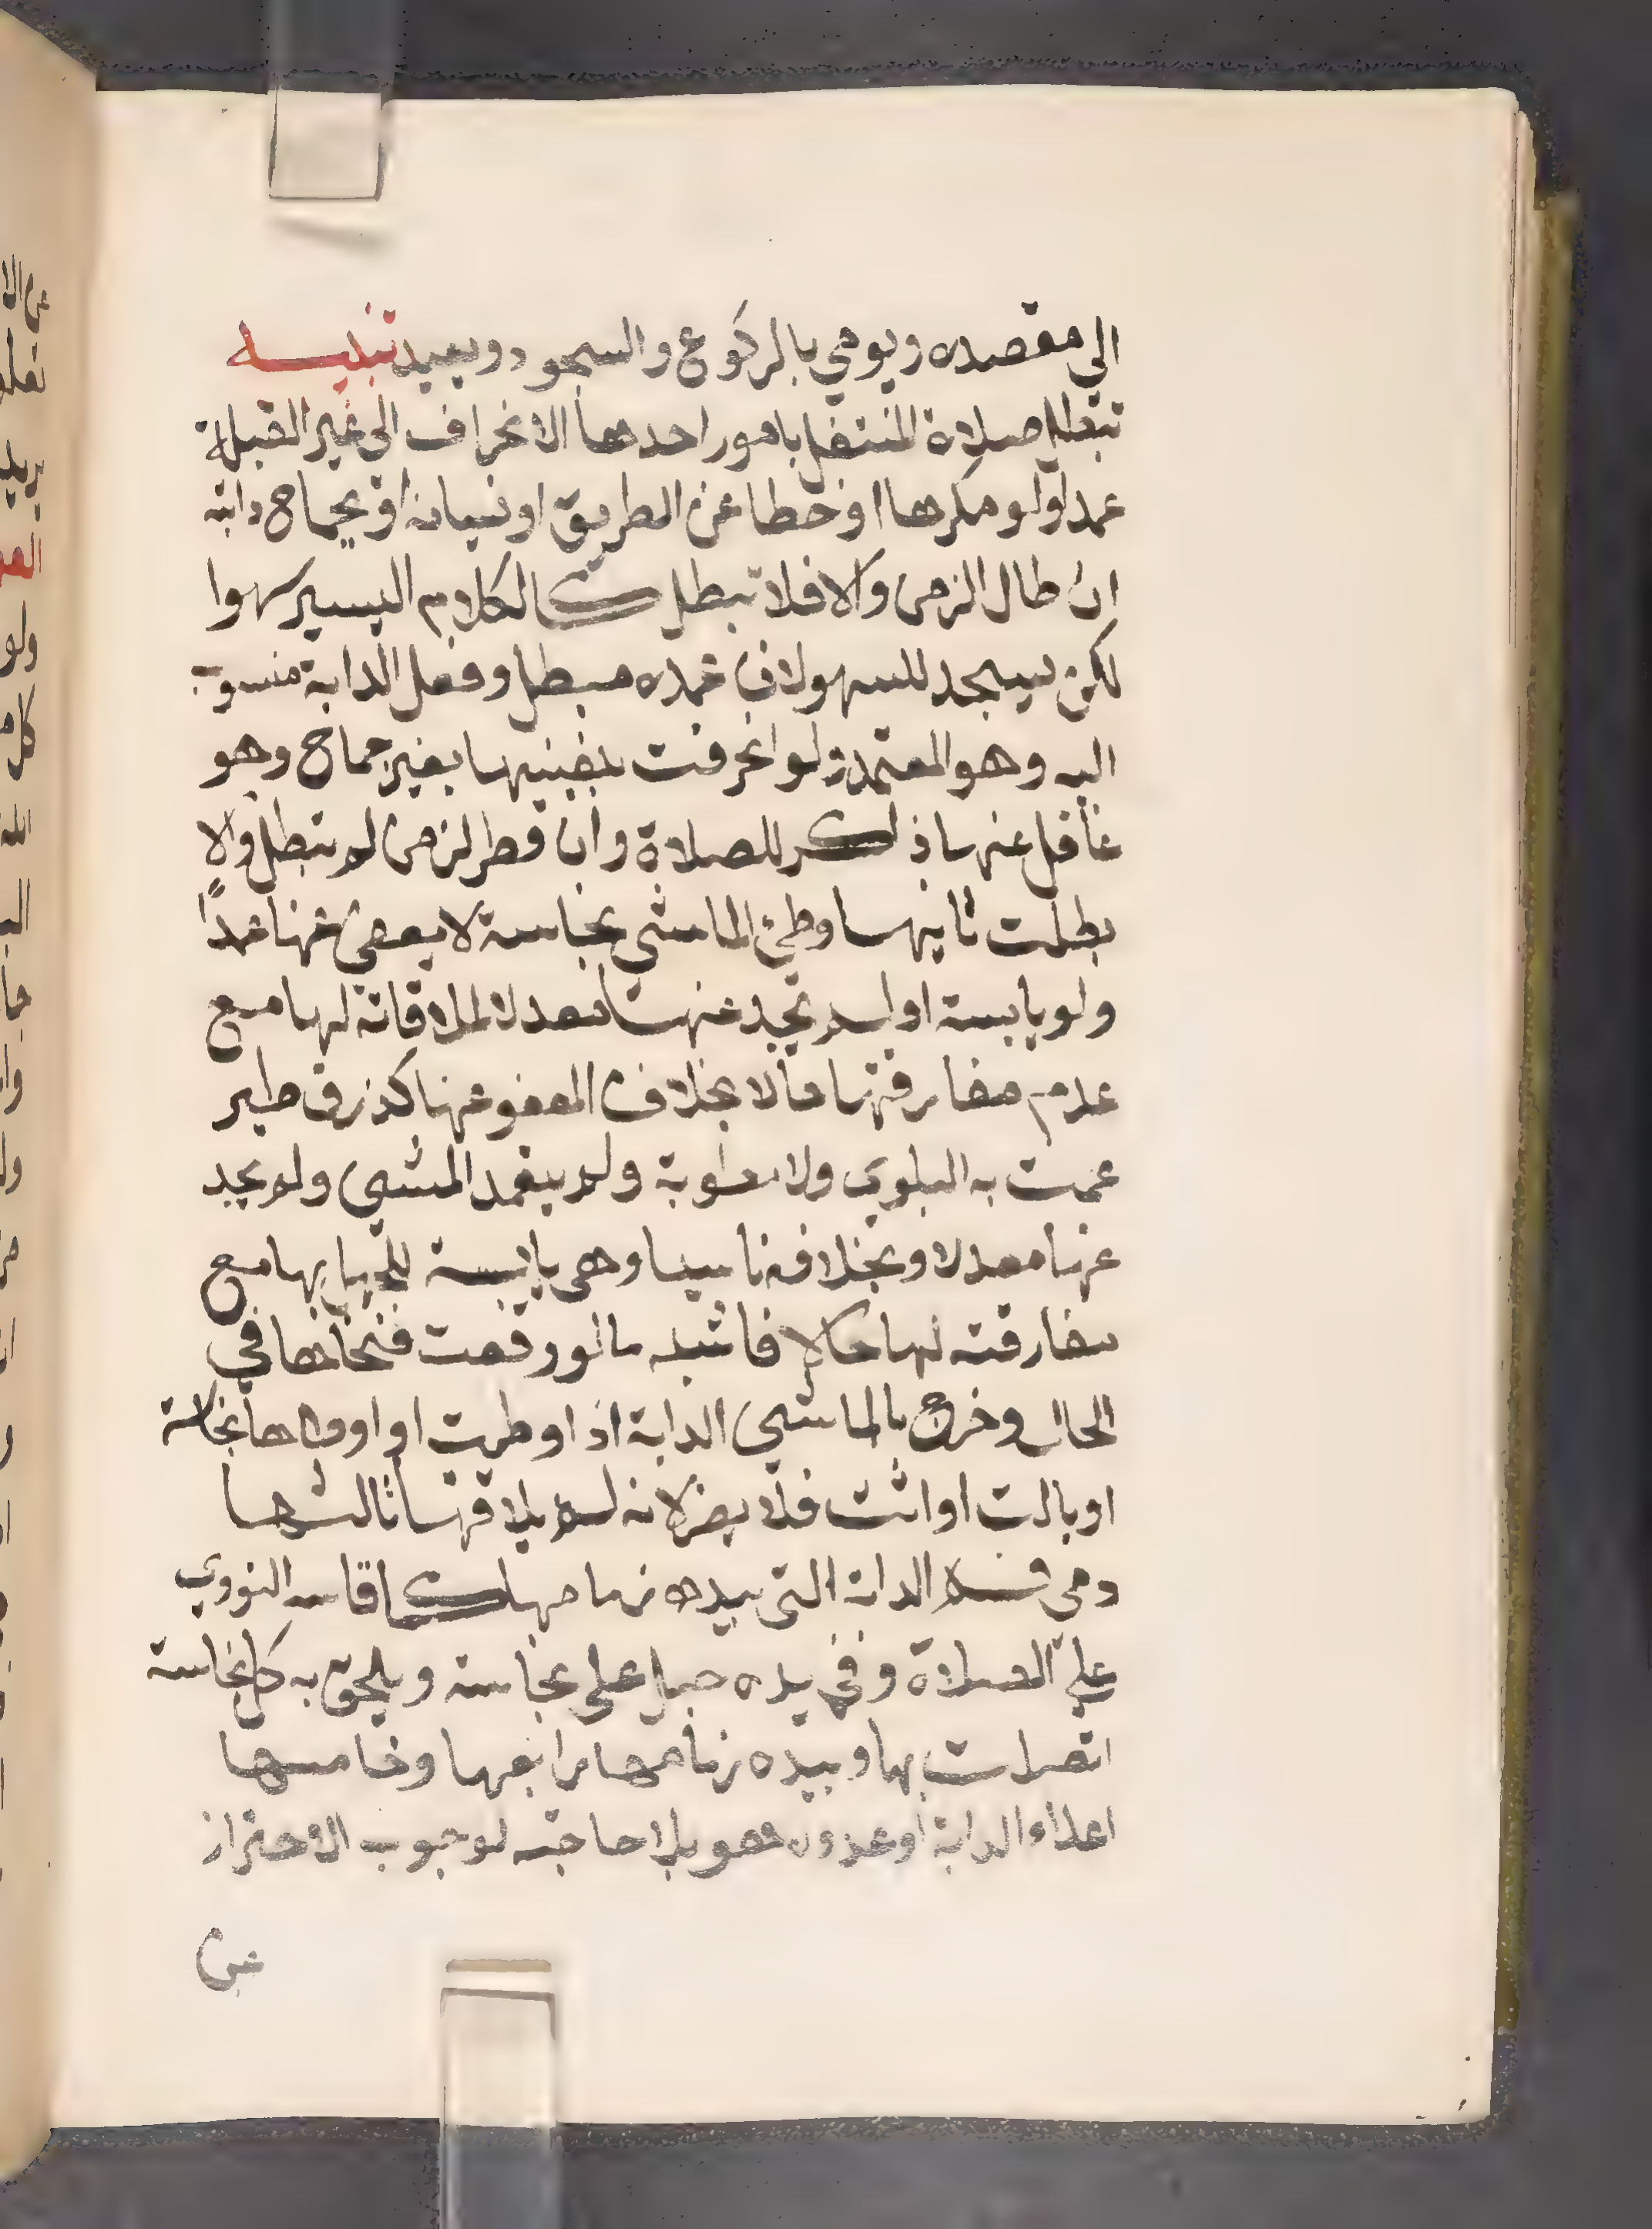 الي مقصده ويومي بالركوع والسجود ويعيد تنبيه
تبطل صلاة المتنفل بامور احدها الانحراف الي غير القبلة
عمدا ولو مكرها او خطا عن الطريق او نسيانه او بجماح دابته
ان طال الزمن والا فلا تبطل كالكلام اليسير سهوا
لكن يسجد للسهو لان عمده مبطل وفعل الدابة منسوب
اليه وهو المعتمد ولو انحرفت بنفسها بغير جماح وهو
غافل عنها ذاكر للصلاة وان قصر الزمن لم تبطل والا
بطلت ثانيها وطئ الماشي نجاسة لا يعفي عنها عمدا
ولو يابسة او لم يجد عنها معدلا لملاقاته لها مع
عدم مفارقتها حالا بخلاف المعفو عنها كذرق طير
عمت به البلوي ولا رطوبة ولم يتعمد المشي ولم يجد
عنها معدلا وبخلافه ناسيا وهي يابسة للجهل بها مع
مفارقته لها حالا فاشبه ما لو وقعت فنحاها في
الحال وخرج بالماشي الدابة اذا وطيت او اوطاها نجاسة
او بالت او راثت فلا يضر لانه لم يلاقها ثالثها
دمي فم الدابة التي بيده زمامها كما قاسه النووي
علي الصلاة وفي يده حبل علي نجاسة ويلحق به كل نجاسة
اتصلت بها وبيده زمامها رابعها وخامسها
اعداء الدابة او عدوه هو بلا حاجة لوجوب الاحتراز
عن